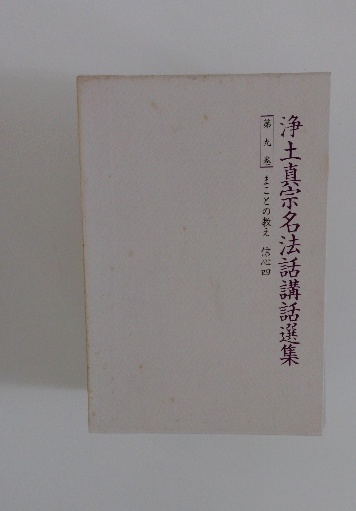 浄土真宗名法話講話選集
第九巻 まことの教え 信心四